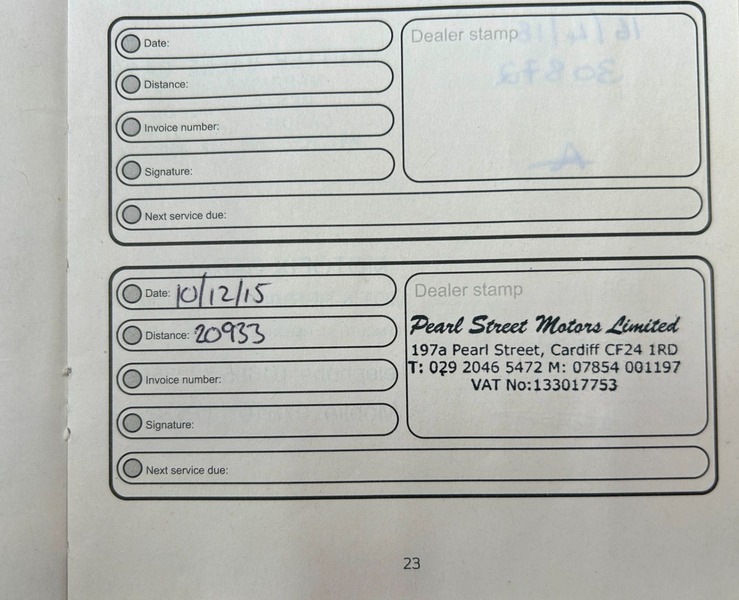 Date:
Distance:
Invoice number:
Signature:
Next service due:
Dealer stamp
Date: 10/12/15
Distance: 20933
Invoice number:
Signature:
Next service due:
Dealer stamp
Pearl Street Motors Limited
197a Pearl Street, Cardiff CF24 1RD
T: 029 2046 5472 M: 07854 001197
VAT No:133017753
23